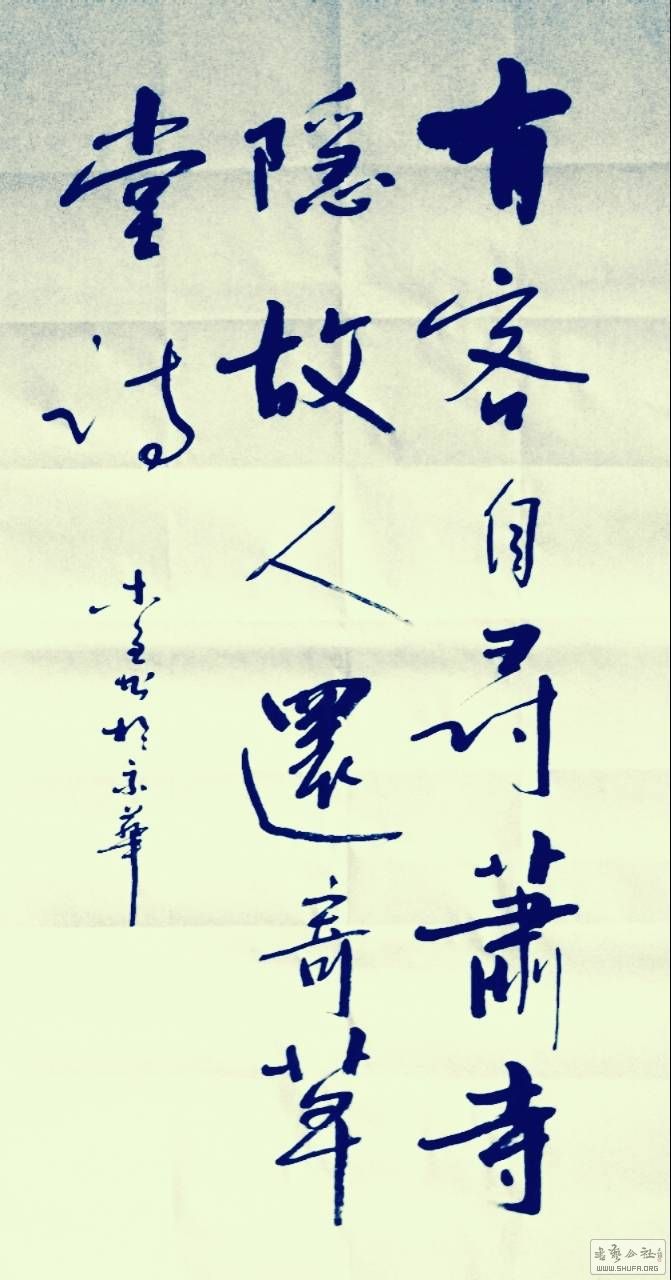 有客自尋蕭寺
隱故人還寄草
堂詩
於京華
書藝公社
WWW.SHUFA.ORG